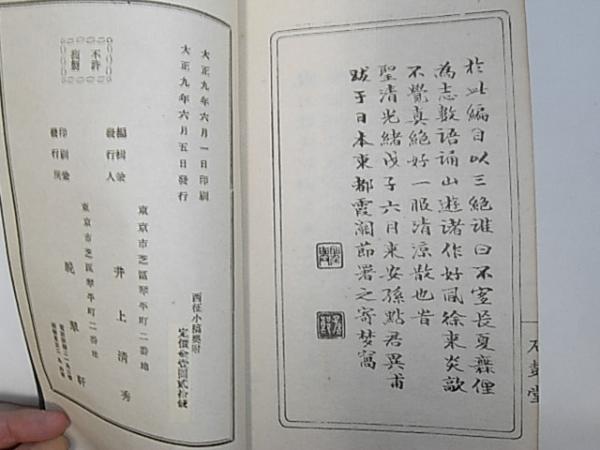 於此編目以三絕誰曰不宜長夏無俚
為志數語誦山遊諸作好風徐來炎歊
不覺真絕好一服清涼散也昔
聖清光緒戊子六月來安孫點君異甫
跋于日本東都霞關節署之寄夢窩
大正九年六月一日印刷
大正九年六月五日發行
不許
複製
編輯兼
發行人
東京市芝區琴平町二番地
井上清秀
印刷兼
發行所
東京市芝區琴平町二番地
晚翠軒
西征小稿奧附